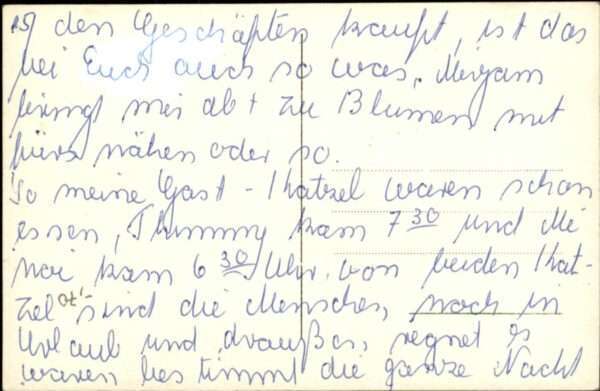 den Geschäften kauft, ist das
bei Euch auch so was. Mirjam
bringt mir ab + zu Blumen mit
nähen oder so.
So meine Gast-Katzel waren schon
essen, Thummy kam 7 30 und Mi
nai kam 6 30 Uhr. von beiden Kat-
zel sind die Menschen noch in
Urlaub und draußen regnet es
waren bestimmt die ganze Nacht